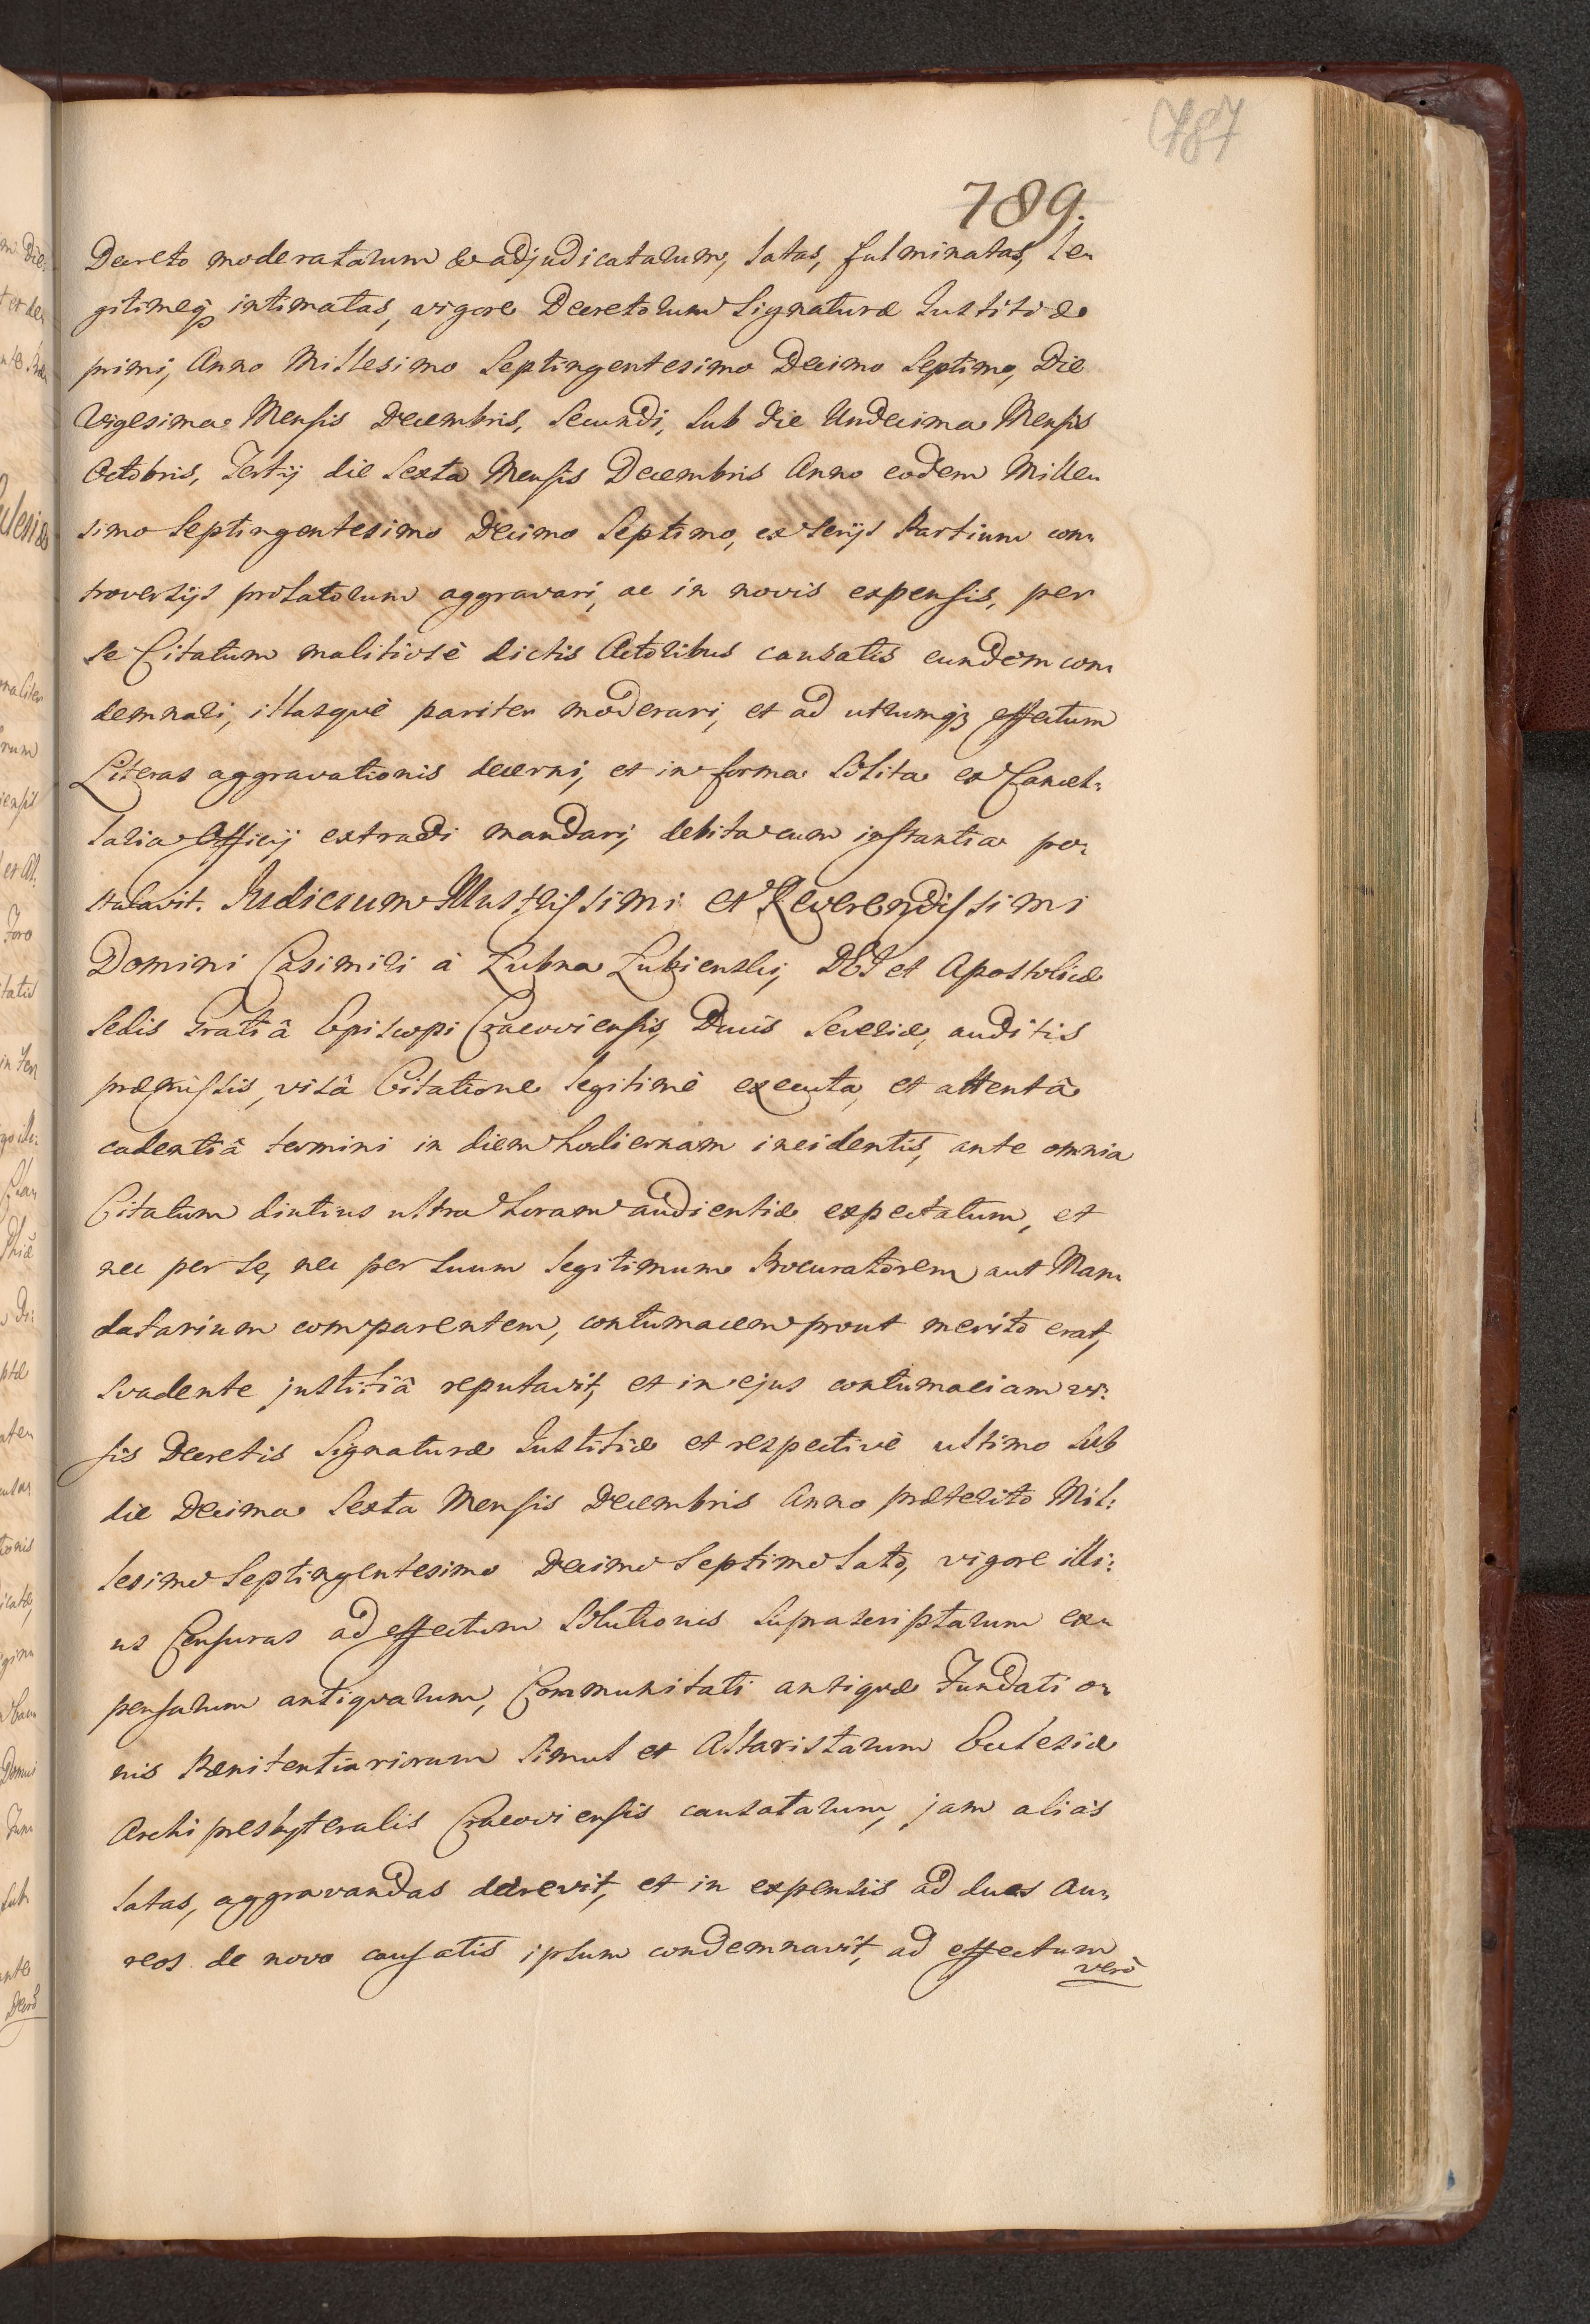 787
789.
Decreto moderatarum & adjudicatarum, latas, fulminatas, le-
gitimeq3 intimatas, vigore Decretorum Signaturæ Justitiæ
primi, Anno Millesimo Septingentesimo Decimo Septimo, Die
Vigesima Mensis Decembris, Secundi, Sub die Undecima Mensis
Octobris, Tertij die Sexta Mensis Decembris Anno eodem Mille-
simo Septingentesimo Decimo Septimo, ex serijs Partium con-
troversijs prolatorum aggravari, ac in novis expensis, per
se Citatum malitiosè dictis Actoribus causatis eundem con-
demnari, illasquè pariter moderari, et ad utrumq3 effectum
Literas aggravationis decerni, et in forma solita ex Cancel:
laria Officij extradi mandari, debita cum instantia po:
stulavit. Judicium Illustrissimi et Reverendissimi
Domini Casimiri à Łubna Łubienski, DEI et Apostolicæ
Sedis Gratiâ Episcopi Cracoviensis, Ducis Severiæ, auditis
præmissis, visâ Citatione legitimè executa, et attentâ
cadentiâ termini in diem hodiernam incidentis, ante omnia
Citatum diutius ultra horam audientiæ expectatum, et
nec per se, nec per suum legitimum Procuratorem aut Man-
datarium comparentem, contumacem prout merito erat,
svadente justitiâ reputavit, et in ejus contumaciam vi:
sis Decretis Signaturæ Justitiæ et respectivè ultimo sub
die Decima Sexta Mensis Decembris Anno præterito Mil:
lesimo Septingentesimo Decimo Septimo lato, vigore illi:
us Censuras ad effectum solutionis suprascriptarum ex-
pensarum antiquarum, Communitati antiquæ Fundatio-
nis Pænitentiariorum simul et Altaristarum Ecclesiæ
Archipresbyteralis Cracoviensis causatarum, jam aliàs
latas, aggravandas decrevit, et in expensis ad duos Au-
reos de novo causatis ipsum condemnavit, ad effectum
verò